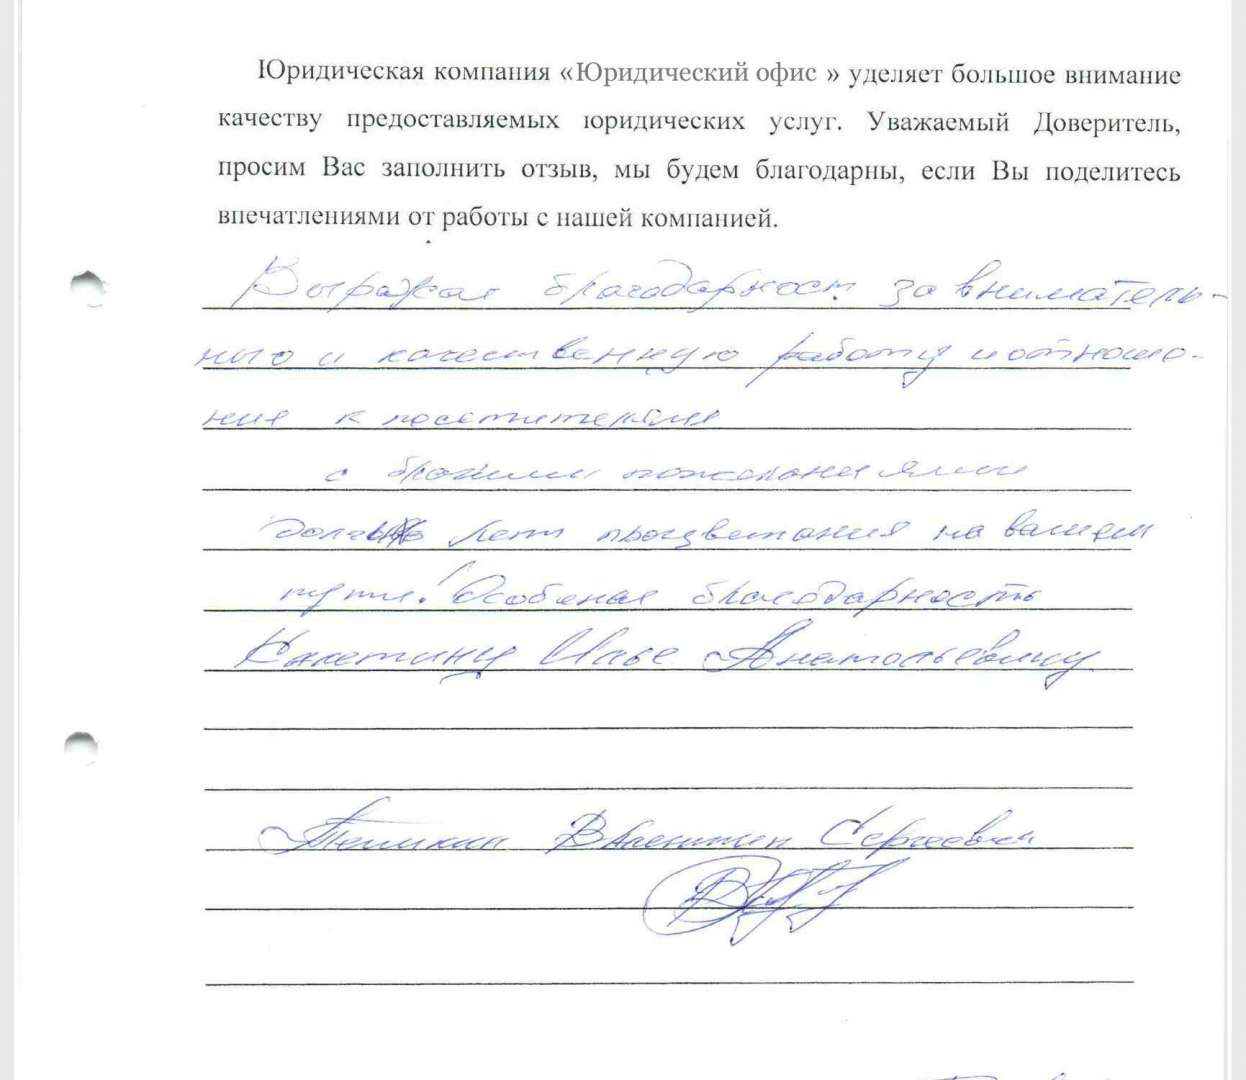 Юридическая компания «Юридический офис » уделяет большое внимание
качеству предоставляемых юридических услуг. Уважаемый Доверитель,
просим Вас заполнить отзыв, мы будем благодарны, если Вы поделитесь
впечатлениями от работы с нашей компанией.
Выражаю благодарност. за вниматель-
ную и качественную работу и отноше-
ния к посетителям
с пожеланиями
лет процветания на вашем
пути! Особеная благодарность
Илье Анатольевичу
Валентин Сергеевич